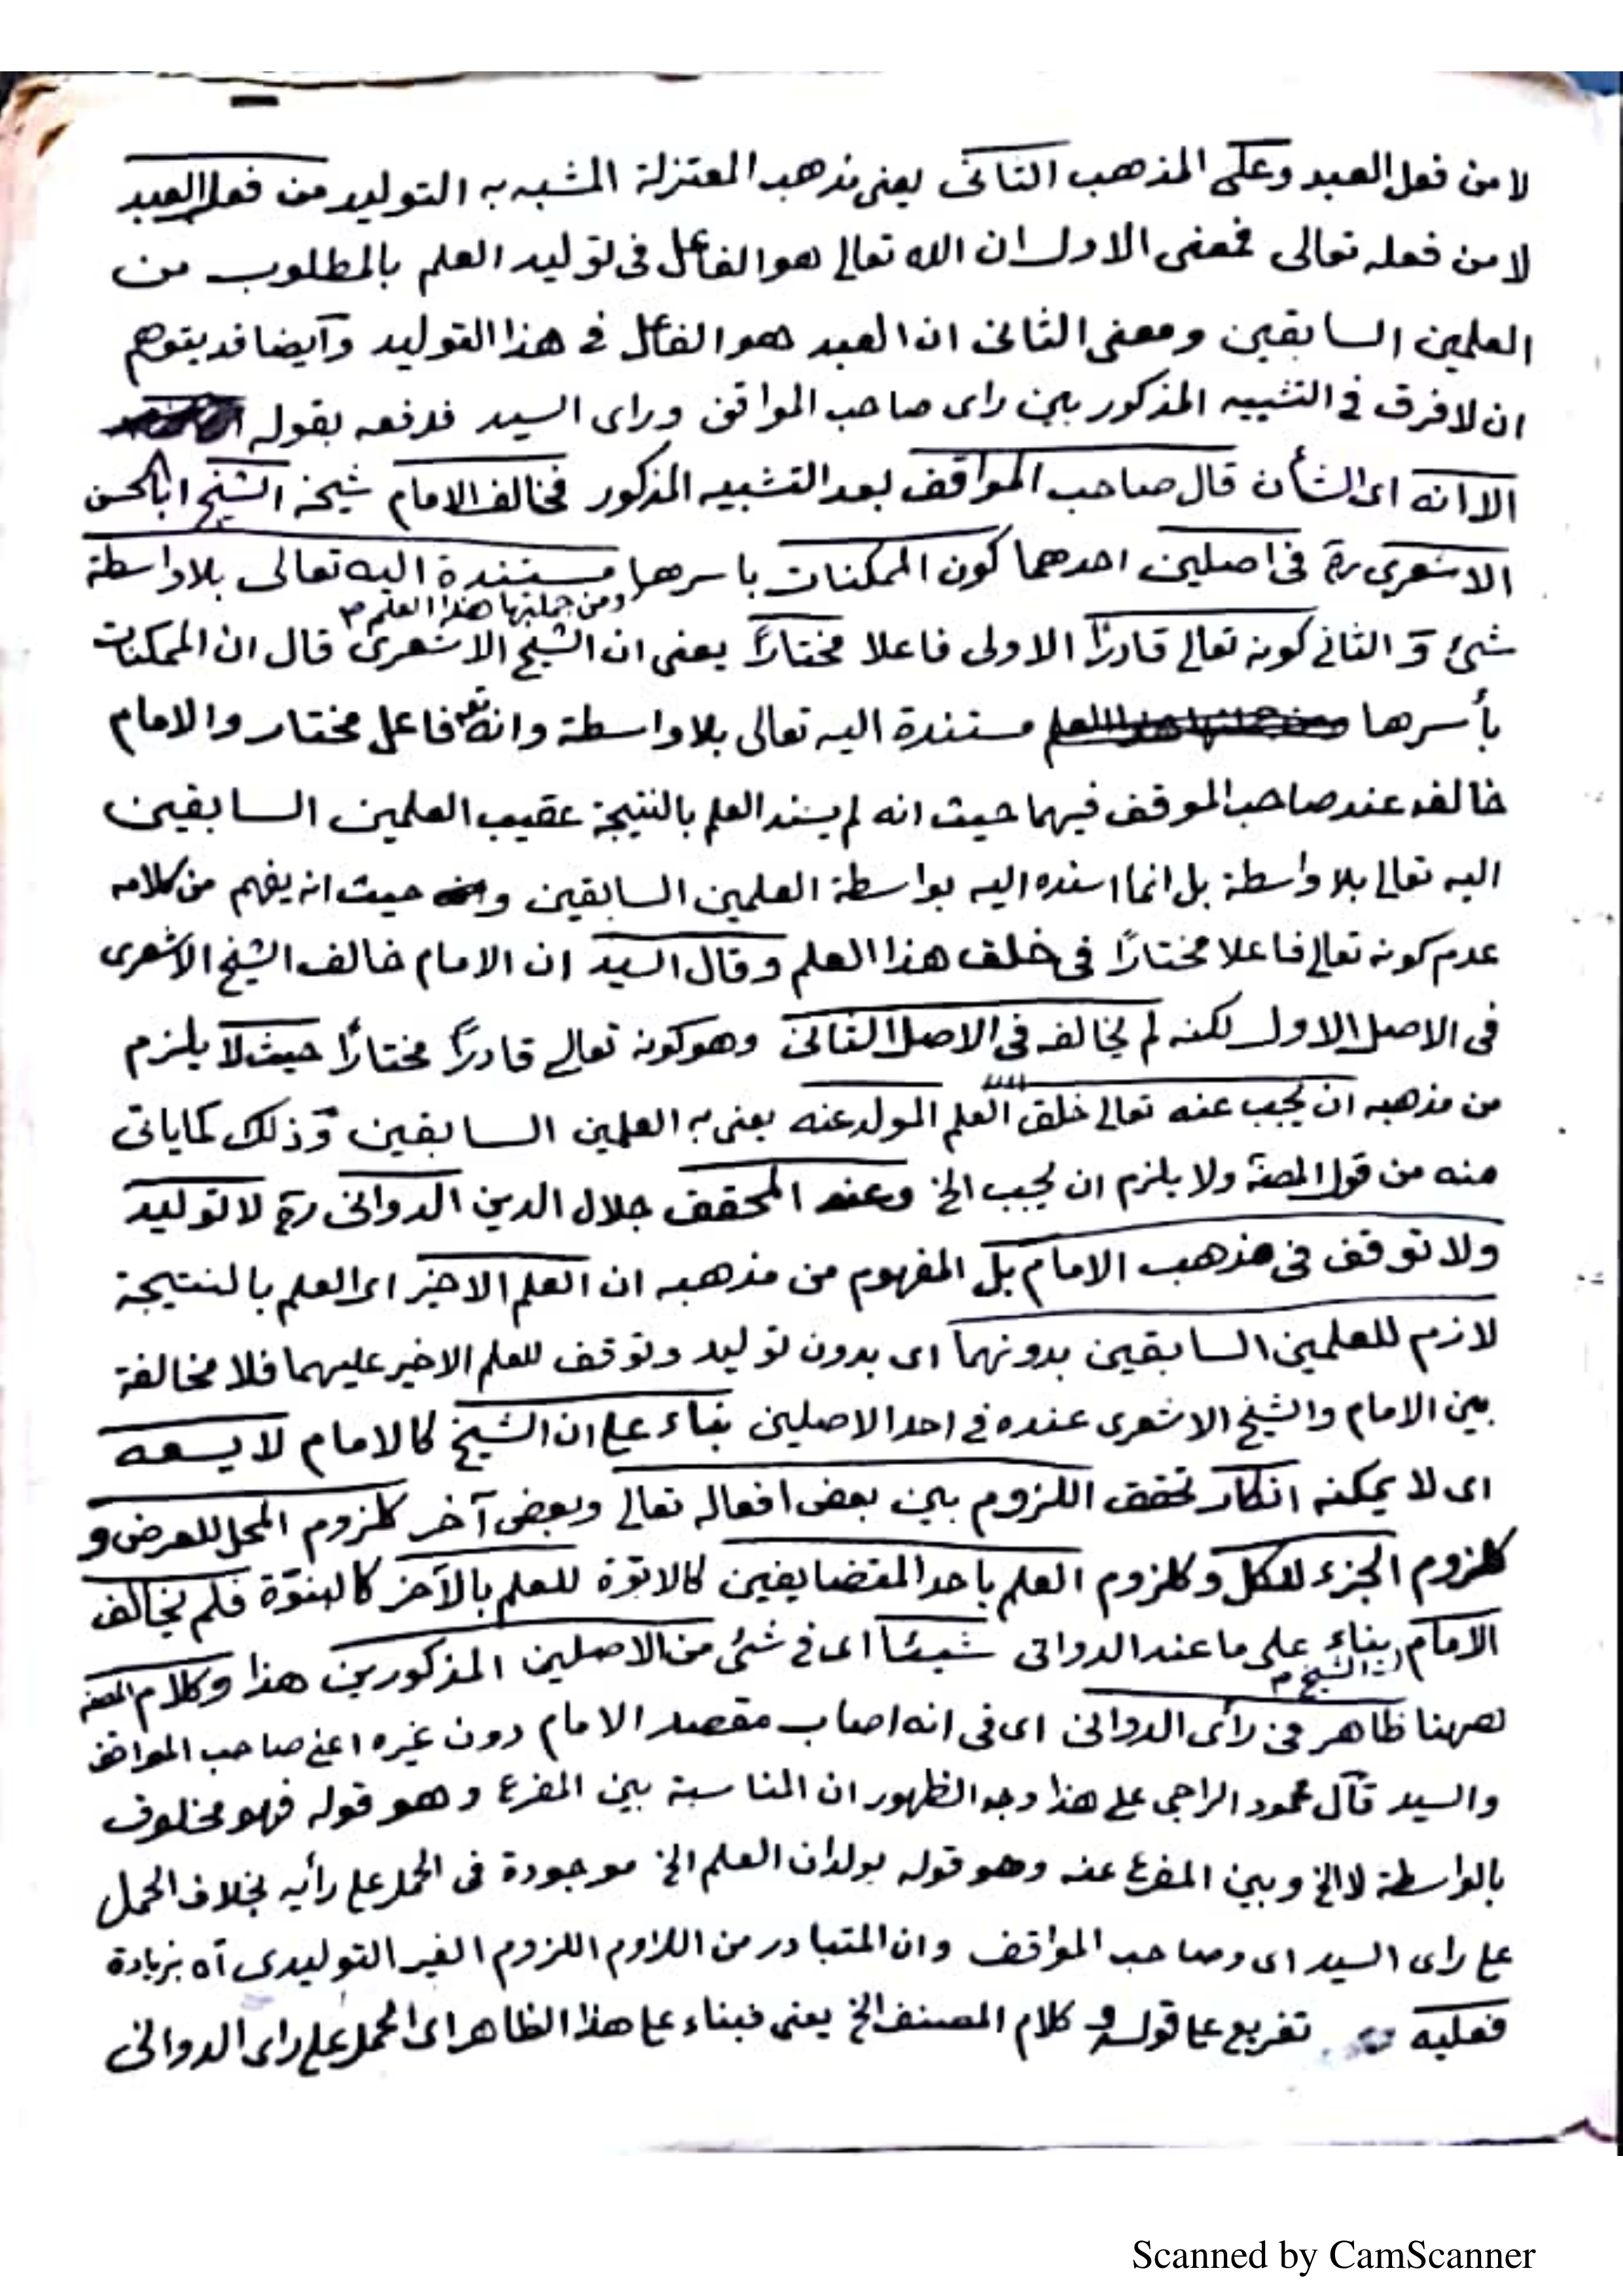 لا من فعل العبد وعلى المذهب الثانى يعنى مذهب المعتزلة المشبه به التوليد من فعل العبد
لا من فعله تعالى فمعنى الاول ان الله تعالى هو الفاعل فى توليد العلم بالمطلوب من
العلمين السابقين ومعنى الثانى ان العبد هو الفاعل فى هذا التوليد وايضا قد يتوهم
ان لا فرق فى التشبيه المذكور بين راى صاحب المواقف وراى السيد فدفعه بقوله
الا انه اى الشأن قال صاحب المواقف بعد التشبيه المذكور فخالف الامام شيخه الشيخ ابا الحسن
الاشعرى رح فى اصلين احدهما كون الممكنات باسرها مستندة اليه تعالى بلا واسطة
ومن جملتها هذا العلم م
شئ و الثانى كونه تعالى قادرًا الاولى فاعلا مختارًا يعنى ان الشيخ الاشعرى قال ان الممكنات
بأسرها مستندة اليه تعالى بلا واسطة وانه تع فاعل مختار والامام
خالفه عند صاحب الموقف فيهما حيث انه لم يسند العلم بالنتيجة عقيب العلمين السابقين
اليه تعالى بلا واسطة بل انما اسنده اليه بواسطة العلمين السابقين و حيث انه يفهم من كلامه
عدم كونه تعالى فاعلا مختارًا فى خلق هذا العلم وقال السيد ان الامام خالف الشيخ الاشعرى
فى الاصل الاول لكنه لم يخالفه فى الاصل الثانى وهو كونه تعالى قادرًا مختارًا حيث لا يلزم
من مذهبه ان يجب عنه تعالى خلق العلم المولد عنه يعنى به العلمين السابقين وذلك كما ياتى
منه من قول المصنف ولا يلزم ان يجب الخ وعند المحقق جلال الدين الدوانى رح لا توليد
ولا توقف فى مذهب الامام بل المفهوم من مذهبه ان العلم الاخير اى العلم بالنتيجة
لازم للعلمين السابقين بدونهما اى بدون توليد وتوقف للعلم الاخير عليهما فلا مخالفة
بين الامام والشيخ الاشعرى عنده فى احد الاصلين بناء على ان الشيخ كالامام لا يسعه
اى لا يمكنه انكار تحقق اللزوم بين بعض افعاله تعالى وبعض آخر كلزوم المحل للعرض و
كلزوم الجزء للكل وكلزوم العلم باحد المتضايفين كالابوّة للعلم بالآخر كالبنوّة فلم يخالف
الامام بناء على ما عند الدوانى شيئا اى فى شئ من الاصلين المذكورين هذا وكلام المصنف
الشيخ م
ههنا ظاهر فى رأى الدوانى اى فى انه اصاب مقصد الامام دون غيره اعنى صاحب المواقف
والسيد قال محمود الراجى على هذا وجه الظهور ان المناسبة بين المفرع وهو قوله فهو مخلوق
بالواسطة لا الخ وبين المفرع عنه وهو قوله يولدان العلم الخ موجودة فى الحمل على رأيه بخلاف الحمل
على راى السيد اى وصاحب المواقف وان المتبادر من اللزوم اللزوم الغير التوليدى آه بزيادة
فعليه تفريع على قوله و كلام المصنف الخ يعنى فبناء على هذا الظاهر اى الحمل على راى الدوانى
Scanned by CamScanner